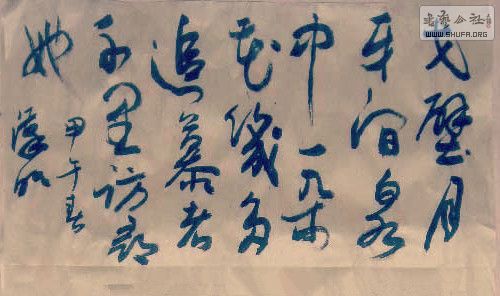 戈壁月
牙泉
中一朵
花幾多
追慕者
千里访
她
甲午春
书艺公社
WWW.SHUFA.ORG